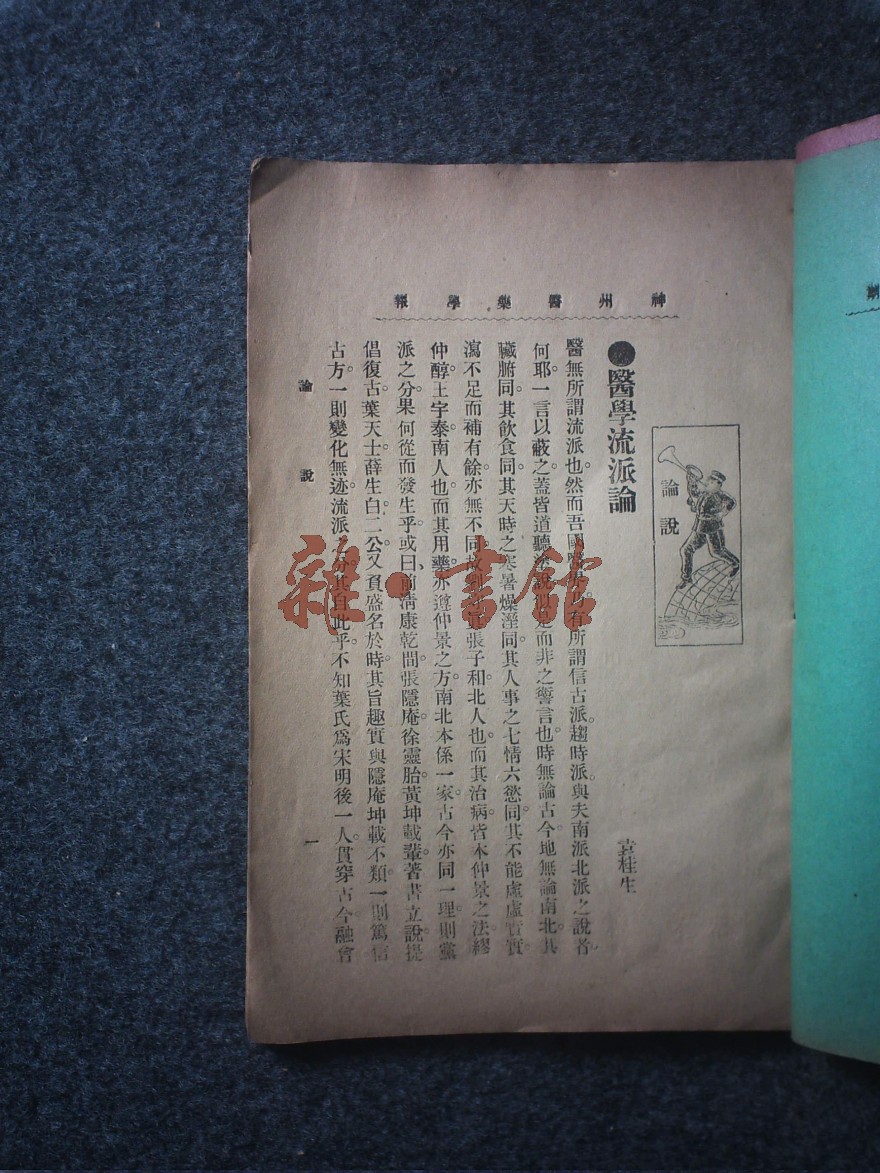 神州醫藥學報
論說
●醫學流派論
袁桂生
醫無所謂流派也。然而吾國醫 有所謂信古派。趨時派。與夫南派北派之說者。
何耶。一言以蔽之。蓋皆道聽塗說 是而非之讆言也。時無論古今。地無論南北。其
臟腑同。其飲食同。其天時之寒暑燥溼同。其人事之七情六慾同。其不能虛虛實實。
瀉不足而補有餘。亦無不同。故 張子和。北人也。而其治病。皆本仲景之法。繆
仲醇。王宇泰。南人也。而其用藥。亦遵仲景之方。南北本係一家。古今亦同一理。則黨
派之分。果何從而發生乎。或曰。前清康乾間。張隱庵。徐靈胎。黃坤載輩。著書立說。提
倡復古。葉天士薛生白二公。又負盛名於時。其旨趣實與隱庵坤載不類。一則篤信
古方。一則變化無迹。流派之分。其自此乎。不知葉氏爲宋明後一人。貫穿古今。融會
論說
一
雜·書館